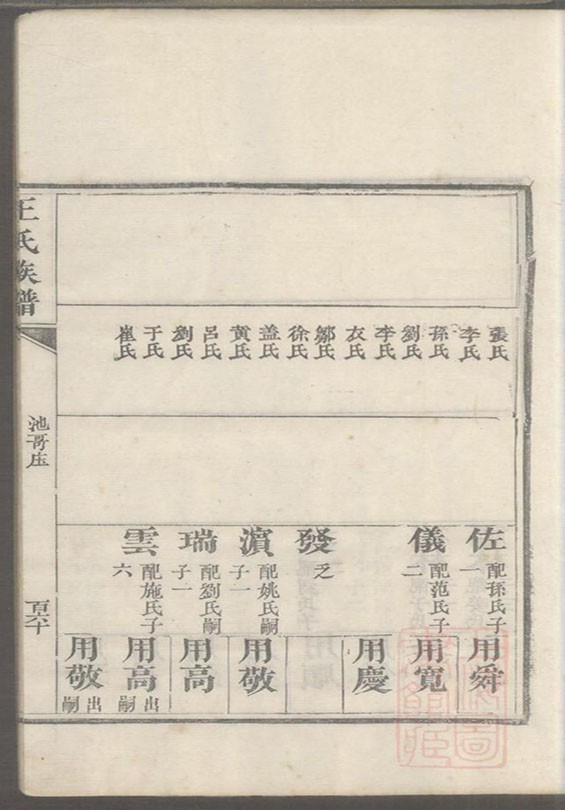 張氏
李氏
孫氏
劉氏
李氏
衣氏
鄒氏
徐氏
盖氏
黄氏
呂氏
劉氏
于氏
崔氏
佐
配孫氏子
一
儀
配范氏子
二
發
乏
濵
配姚氏嗣
子一
瑞
配劉氏嗣
子一
雲
配施氏子
六
用舜
用寬
用慶
用敬
用高
用高
出
嗣
用敬
出
嗣
王氏族譜
池哥庄
百六十